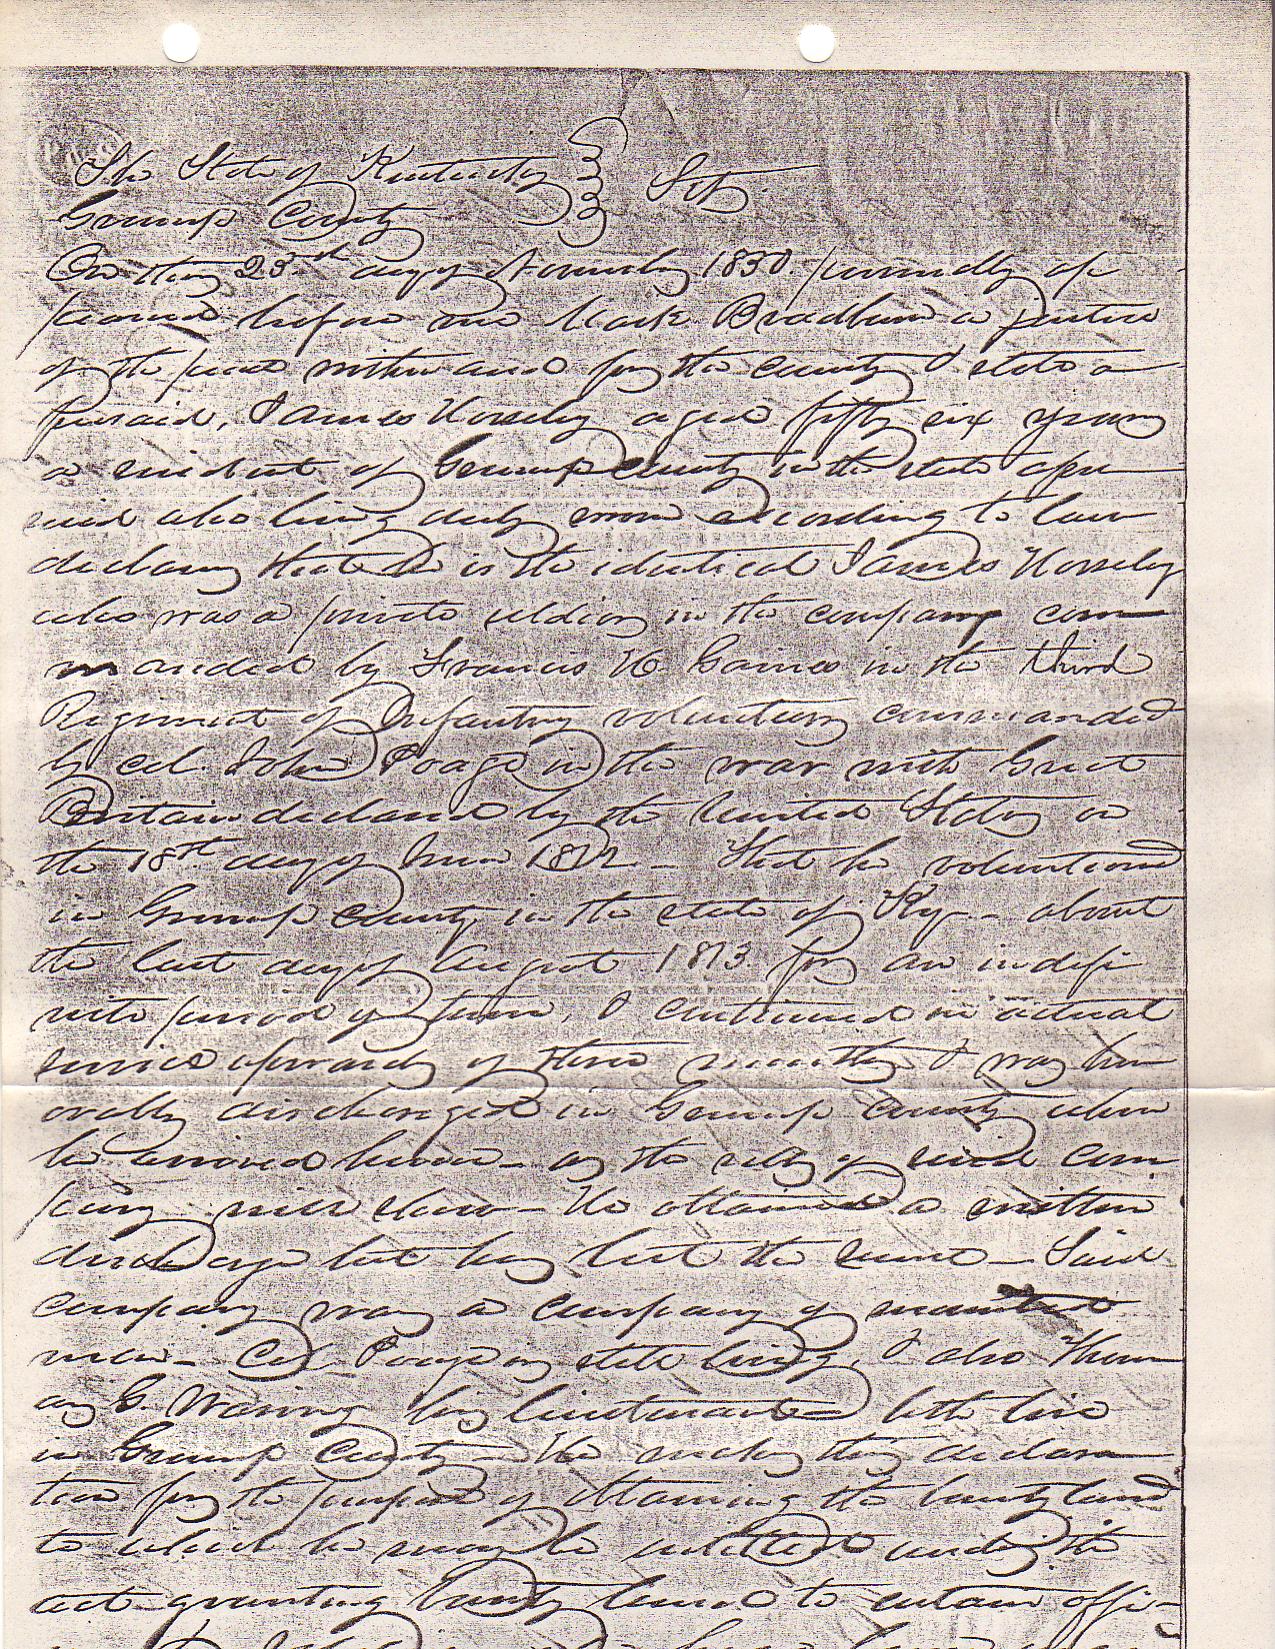 The State of Kentucky } Sct.
Greenup County
On this 25th day of November 1850. personally ap
peared before me Mark Bradburn a justice
of the peace within and for the county & state a
foresaid, James Horseley aged fifty six years
a resident of Greenup County in the state afore
said who being duly sworn according to law
declares that he is the identical James Horseley
who was a private soldier in the company com
manded by Francis H Gaines in the third
Regiment of Infantry volunteers commanded
by Col. John Poage in the war with Great
Britain declared by the United States on
the 18th day of June 1812 – That he volunteered
in Greenup County in the state of Ky – about
the last day of August 1813 for an indefi
nite period of time, & continued in actual
service upwards of three months & was hon
orably discharged in Greenup County when
he arrived home – as the rolls of said com
pany will show – He obtained a written
discharge but has lost the same – Said
company was a company of mounted
men – Col Poage is still living, & also Thom
as G. Waring his lieutenant both live
in Greenup County – He makes this declara
tion for the purpose of obtaining the bounty land
to which he may be entitled under the
act granting bounty land to certain offi–